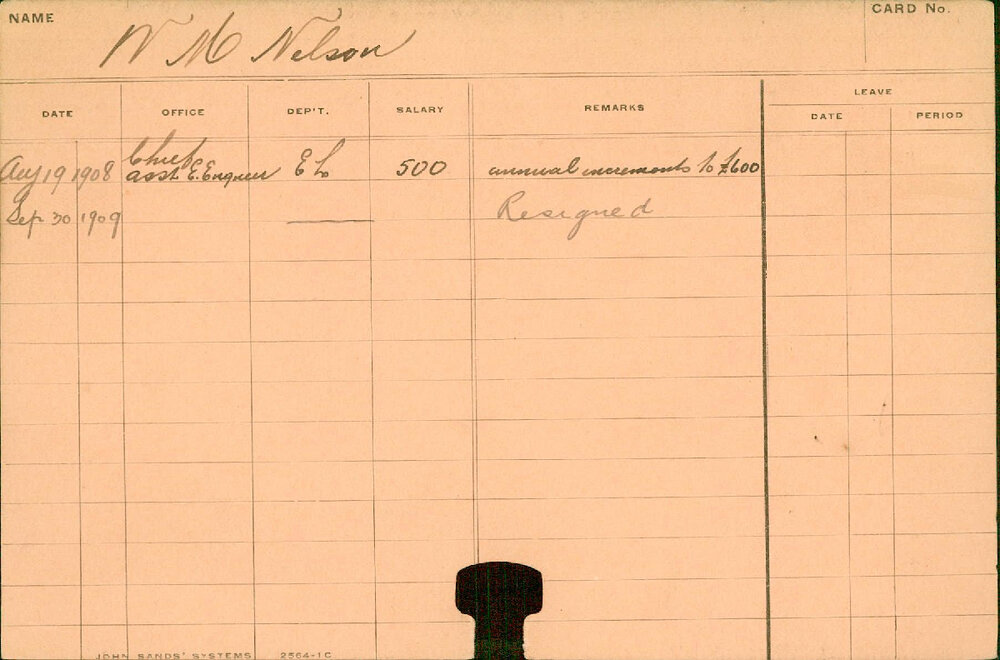 NAME
W M Nelson
CARD No.
DATE OFFICE DEP'T. SALARY REMARKS LEAVE
DATE PERIOD
Aug 19 1908 Chief asst. E. Engineer E L 500 annual increments to £600
Sep 30 1909 Resigned
JOHN SANDS' SYSTEMS 2564-1C